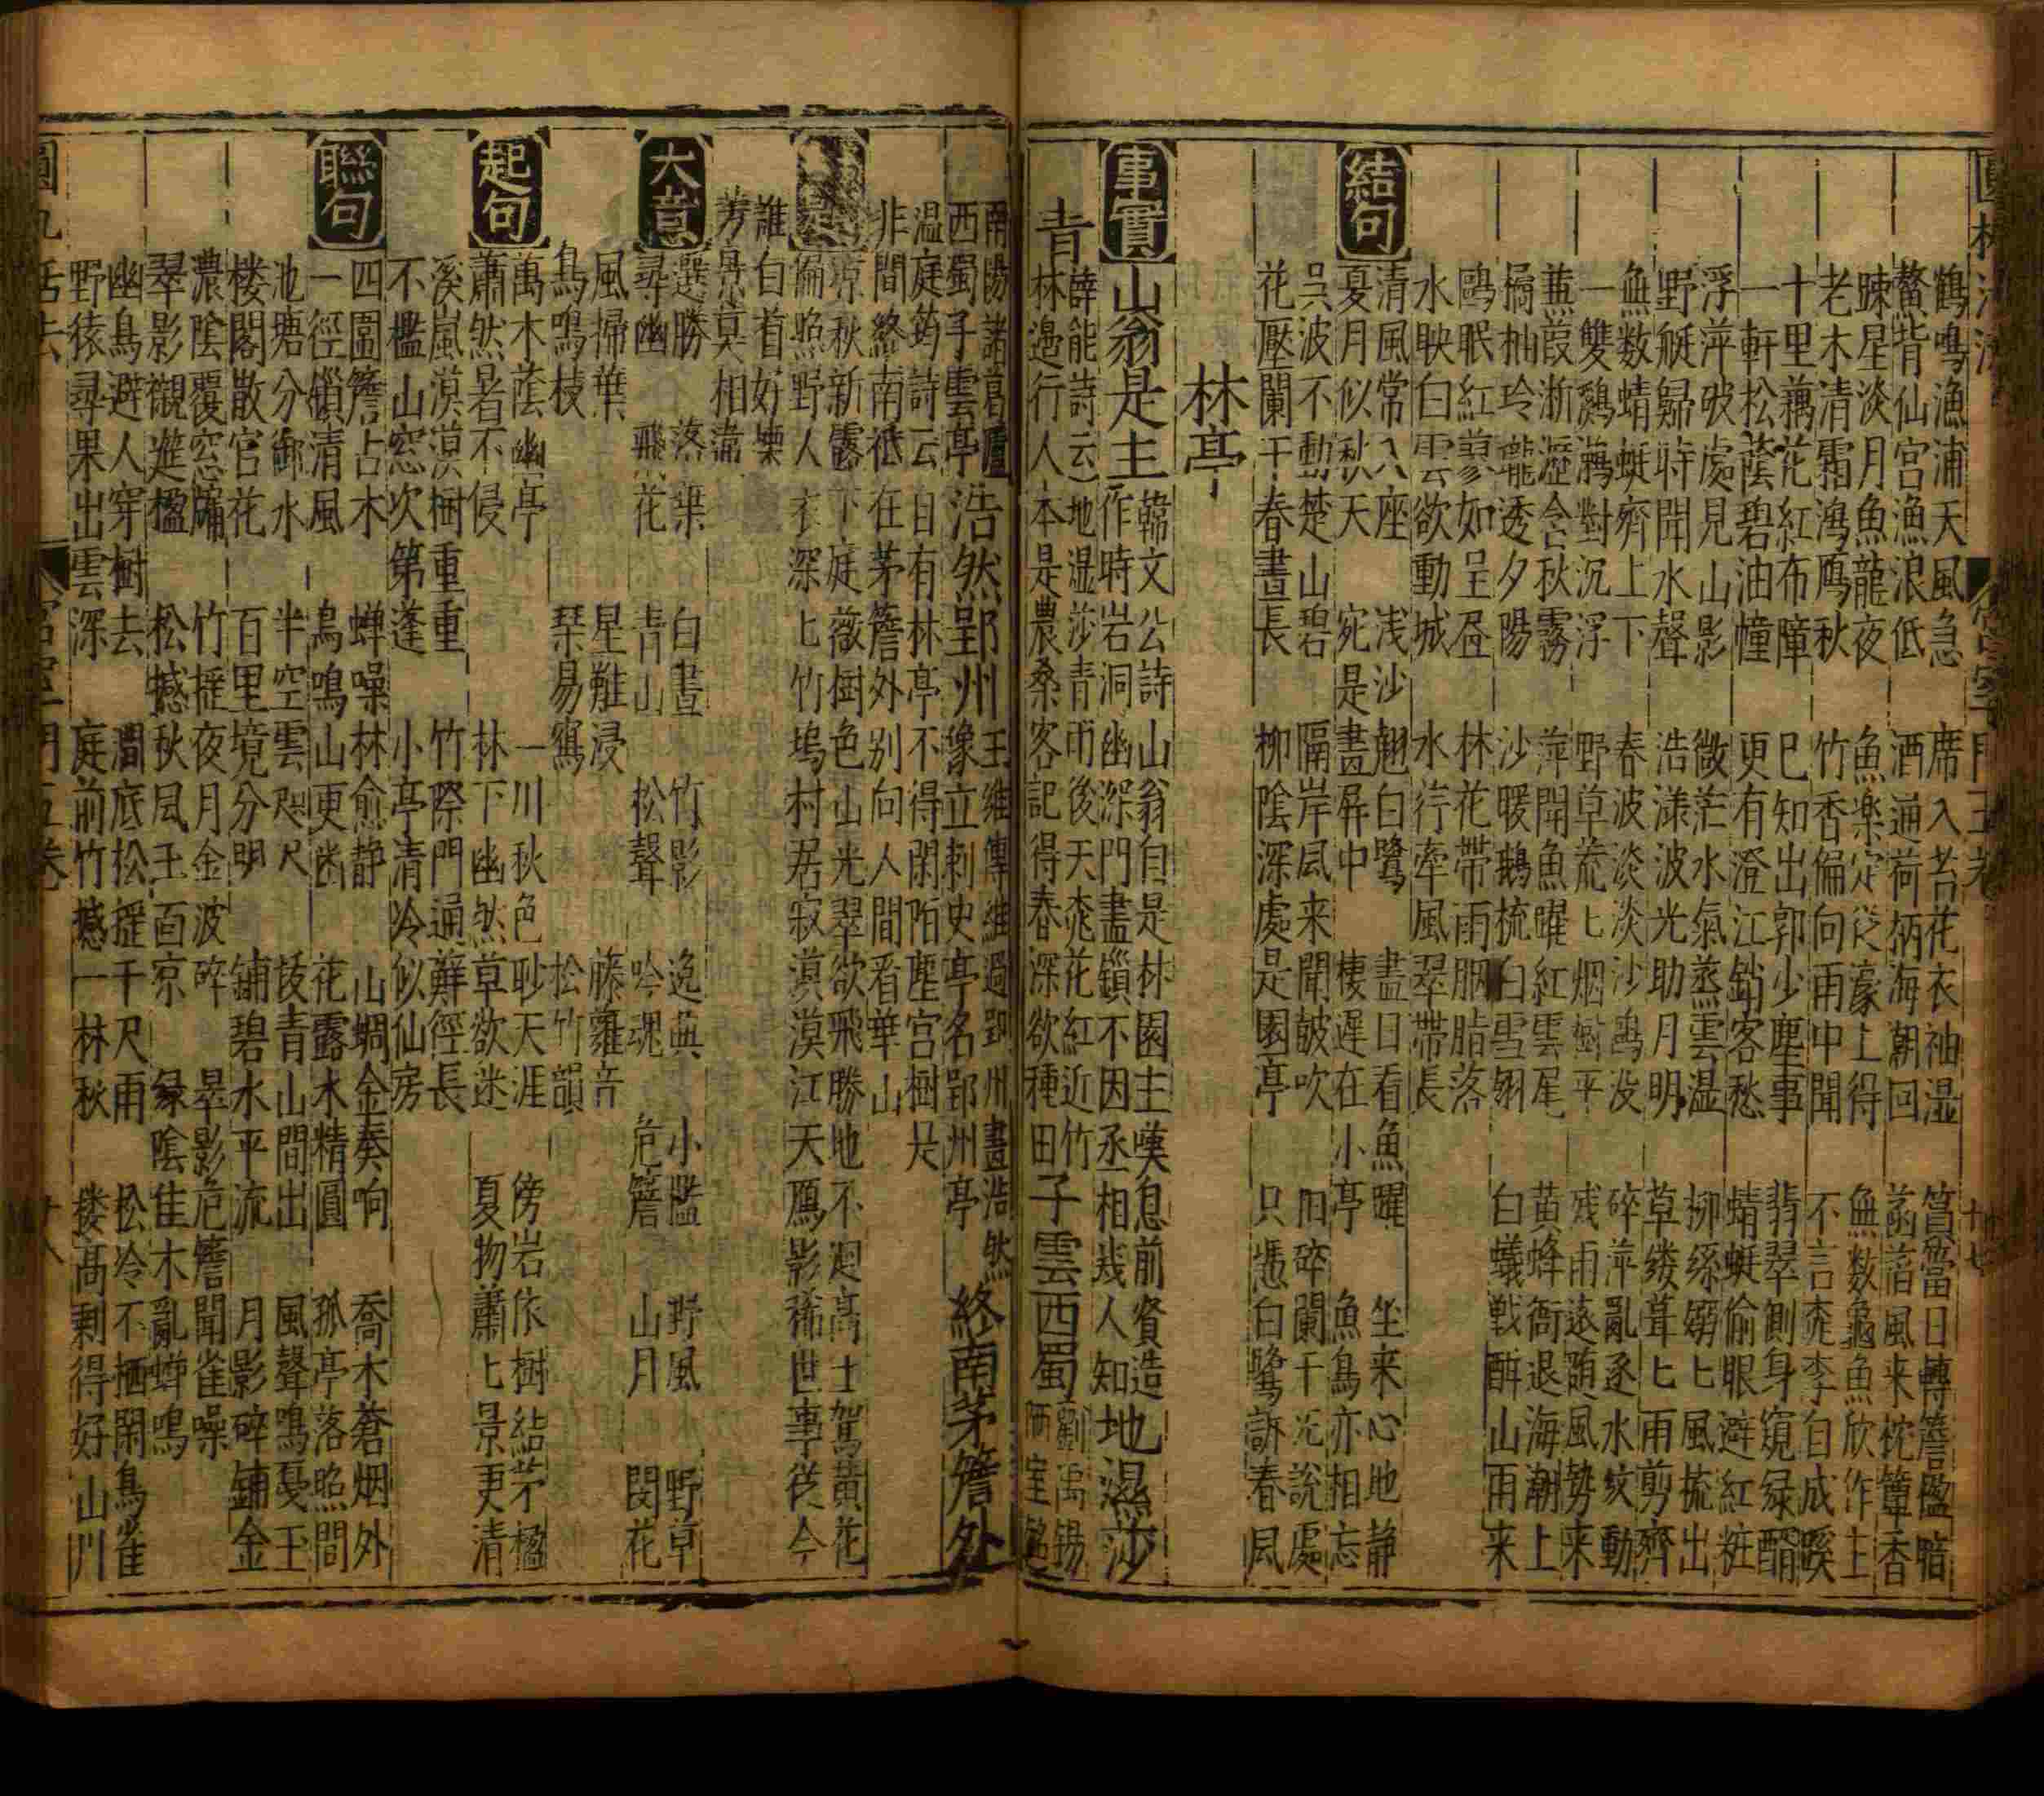 鶴鳴漁浦天風急 席入苔花衣袖湿 篔簹日轉簷楹暗
鰲背仙宫漁浪低 酒通荷柄海潮回 菡萏風来枕簟香
踈星淡月魚龍夜 魚楽定従濠上得 無数龜魚欣作主
老木清霜鴻鴈秋 竹香偏向雨中聞 不言桃李自成蹊
十里藕花紅布障 已知出郭少塵事 翡翠側身窺緑醑
一軒松蔭碧油幢 更有澄江銷客愁 蜻蜓偷眼避紅粧
浮萍破處見山影 微茫水氣蒸雲湿 柳絲嫋匕風掃出
野艇歸時聞水聲 浩渌波光助月明 草縷茸匕雨剪齊
無数蜻蜓齊上下 春波淡淡沙鷗没 碎萍亂逐水紋動
一雙鸂鶒對沉浮 野草荒匕烟樹平 残雨遠随風勢来
蒹葭淅瀝含秋霧 萍開魚曜紅雲尾 黄蜂衙退海潮上
橘柚玲瓏透夕陽 沙暖鵝梳白雪翎 白蟻戦酣山雨来
鷗眠紅蓼如呈昼 林花帯雨胭脂落
水映白雲欲動城 水荇牽風翠帯長
結句
清風常入座 浅沙翹白鷺 盡日看魚曜 坐来心地静
夏月似秋天 宛是畫屛中 棲遲在小亭 魚鳥亦相忘
吳波不動楚山碧 隔岸風来聞皷吹 旧碎闌干况說處
花壓闌干春晝長 柳陰深處是園亭 只慿白鷺訴春風
林亭
事實
山翁是主 韓文公詩山翁自是林園主嘆息前賓造
作時岩洞幽深門盡鎖不因丞相幾人知 地濕莎
青 薛能詩云地湿莎青雨後天桃花紅近竹
林邉行人本是農桑客記得春深欲種田 子雲西蜀 劉禹錫
陋室銘
南陽諸葛廬
西蜀子雲亭 浩然郢州 王維傳維過郢州畫浩然
像立刺史亭名郢州亭 終南茅簷外
温庭筠詩云自有林亭不得閑陌塵宫樹是
非間終南祗在茅簷外别向人間看華山
凉秋新露下庭薇樹色山光翠欲飛勝地不迴高士駕黄花
偏照野人衣深匕竹塢村居寂漠漠江天鴈影稀世事従今
誰白首好懐
芳景莫相違
大意
選勝 落葉 白晝 竹影 逸興 小檻 野風 野草
尋幽 飛花 青山 松聲 吟魂 危簷 山月 閑花
風掃葉 星難浸 藤蘿音
鳥鳴枝 琹易寫 松竹韻
起句
萬木蔭幽亭 一川秋色耿天涯 傍岩依樹結茅楹
蕭然暑不侵 林下幽然草欲迷 夏物蕭匕景更清
溪嵐漠漠樹重重 竹際門通蘚徑長
不檻山窓次第逢 小亭清冷似仙房
聯句
四圍簷占木 蝉噪林愈静 山蜩金奏响 喬木蒼烟外
一徑鎖清風 鳥鳴山更幽 花露水精圓 孤亭落照間
池塘分御水 半空雲咫尺 拔青山間出 風聲鳴戞玉
楼閣散官花 百里境分明 鋪碧水平流 月影碎鋪金
濃陰覆窓牖 竹摇夜月金波碎 翠影危簷聞雀噪
翠影襯遊楹 松撼秋風玉面凉 緑陰佳木亂蝉鳴
幽鳥避人穿樹去 澗底松摇千尺雨 松冷不栖閑鳥雀
野猿尋果出雲深 庭前竹撼一林秋 楼高剰得好山川